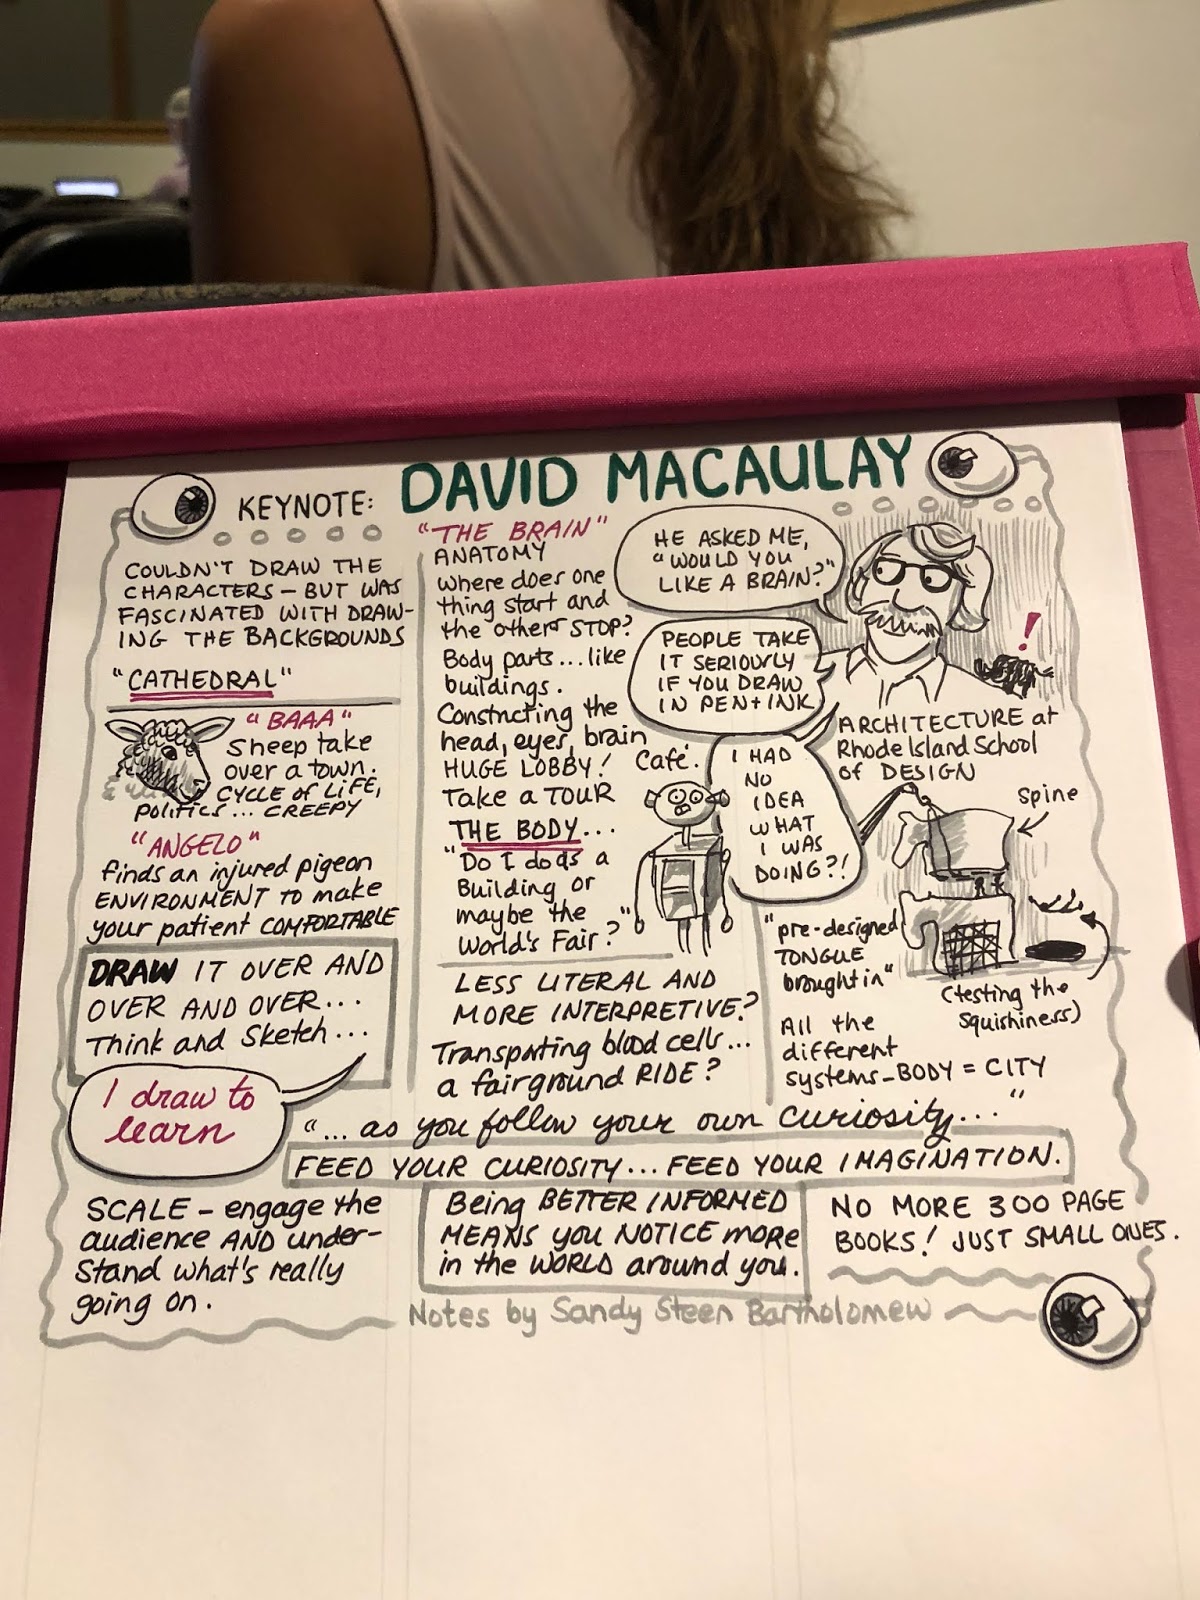 KEYNOTE: DAVID MACAULAY
COULDN'T DRAW THE
CHARACTERS – BUT WAS
FASCINATED WITH DRAW-
ING THE BACKGROUNDS
"CATHEDRAL"
"BAAA"
Sheep take
over a town.
CYCLE OF LIFE,
politics... CREEPY
"ANGELO"
finds an injured pigeon
ENVIRONMENT to make
your patient COMFORTABLE
DRAW IT OVER AND
OVER AND OVER...
Think and Sketch...
I draw to
learn
"THE BRAIN"
ANATOMY
Where does one
thing start and
the other STOP?
Body parts... like
buildings.
Constructing the
head, eyes, brain
HUGE LOBBY! Café.
Take a TOUR
THE BODY...
"Do I do as a
Building or
maybe the
World's Fair?"
LESS LITERAL AND
MORE INTERPRETIVE?
Transporting blood cells...
a fairground RIDE?
HE ASKED ME,
"WOULD YOU
LIKE A BRAIN?"
PEOPLE TAKE
IT SERIOUSLY
IF YOU DRAW
IN PEN + INK
!
I HAD
NO
IDEA
WHAT
I WAS
DOING?!
ARCHITECTURE at
Rhode Island School
of DESIGN
Spine
"pre-designed
TONGUE
brought in"
(testing the
squishiness)
All the
different
systems – BODY = CITY
"... as you follow your own curiosity..."
FEED YOUR CURIOSITY... FEED YOUR IMAGINATION.
SCALE – engage the
audience AND under-
stand what's really
going on.
Being BETTER INFORMED
MEANS you NOTICE more
in the WORLD around you.
NO MORE 300 PAGE
BOOKS! JUST SMALL ONES.
Notes by Sandy Steen Bartholomew